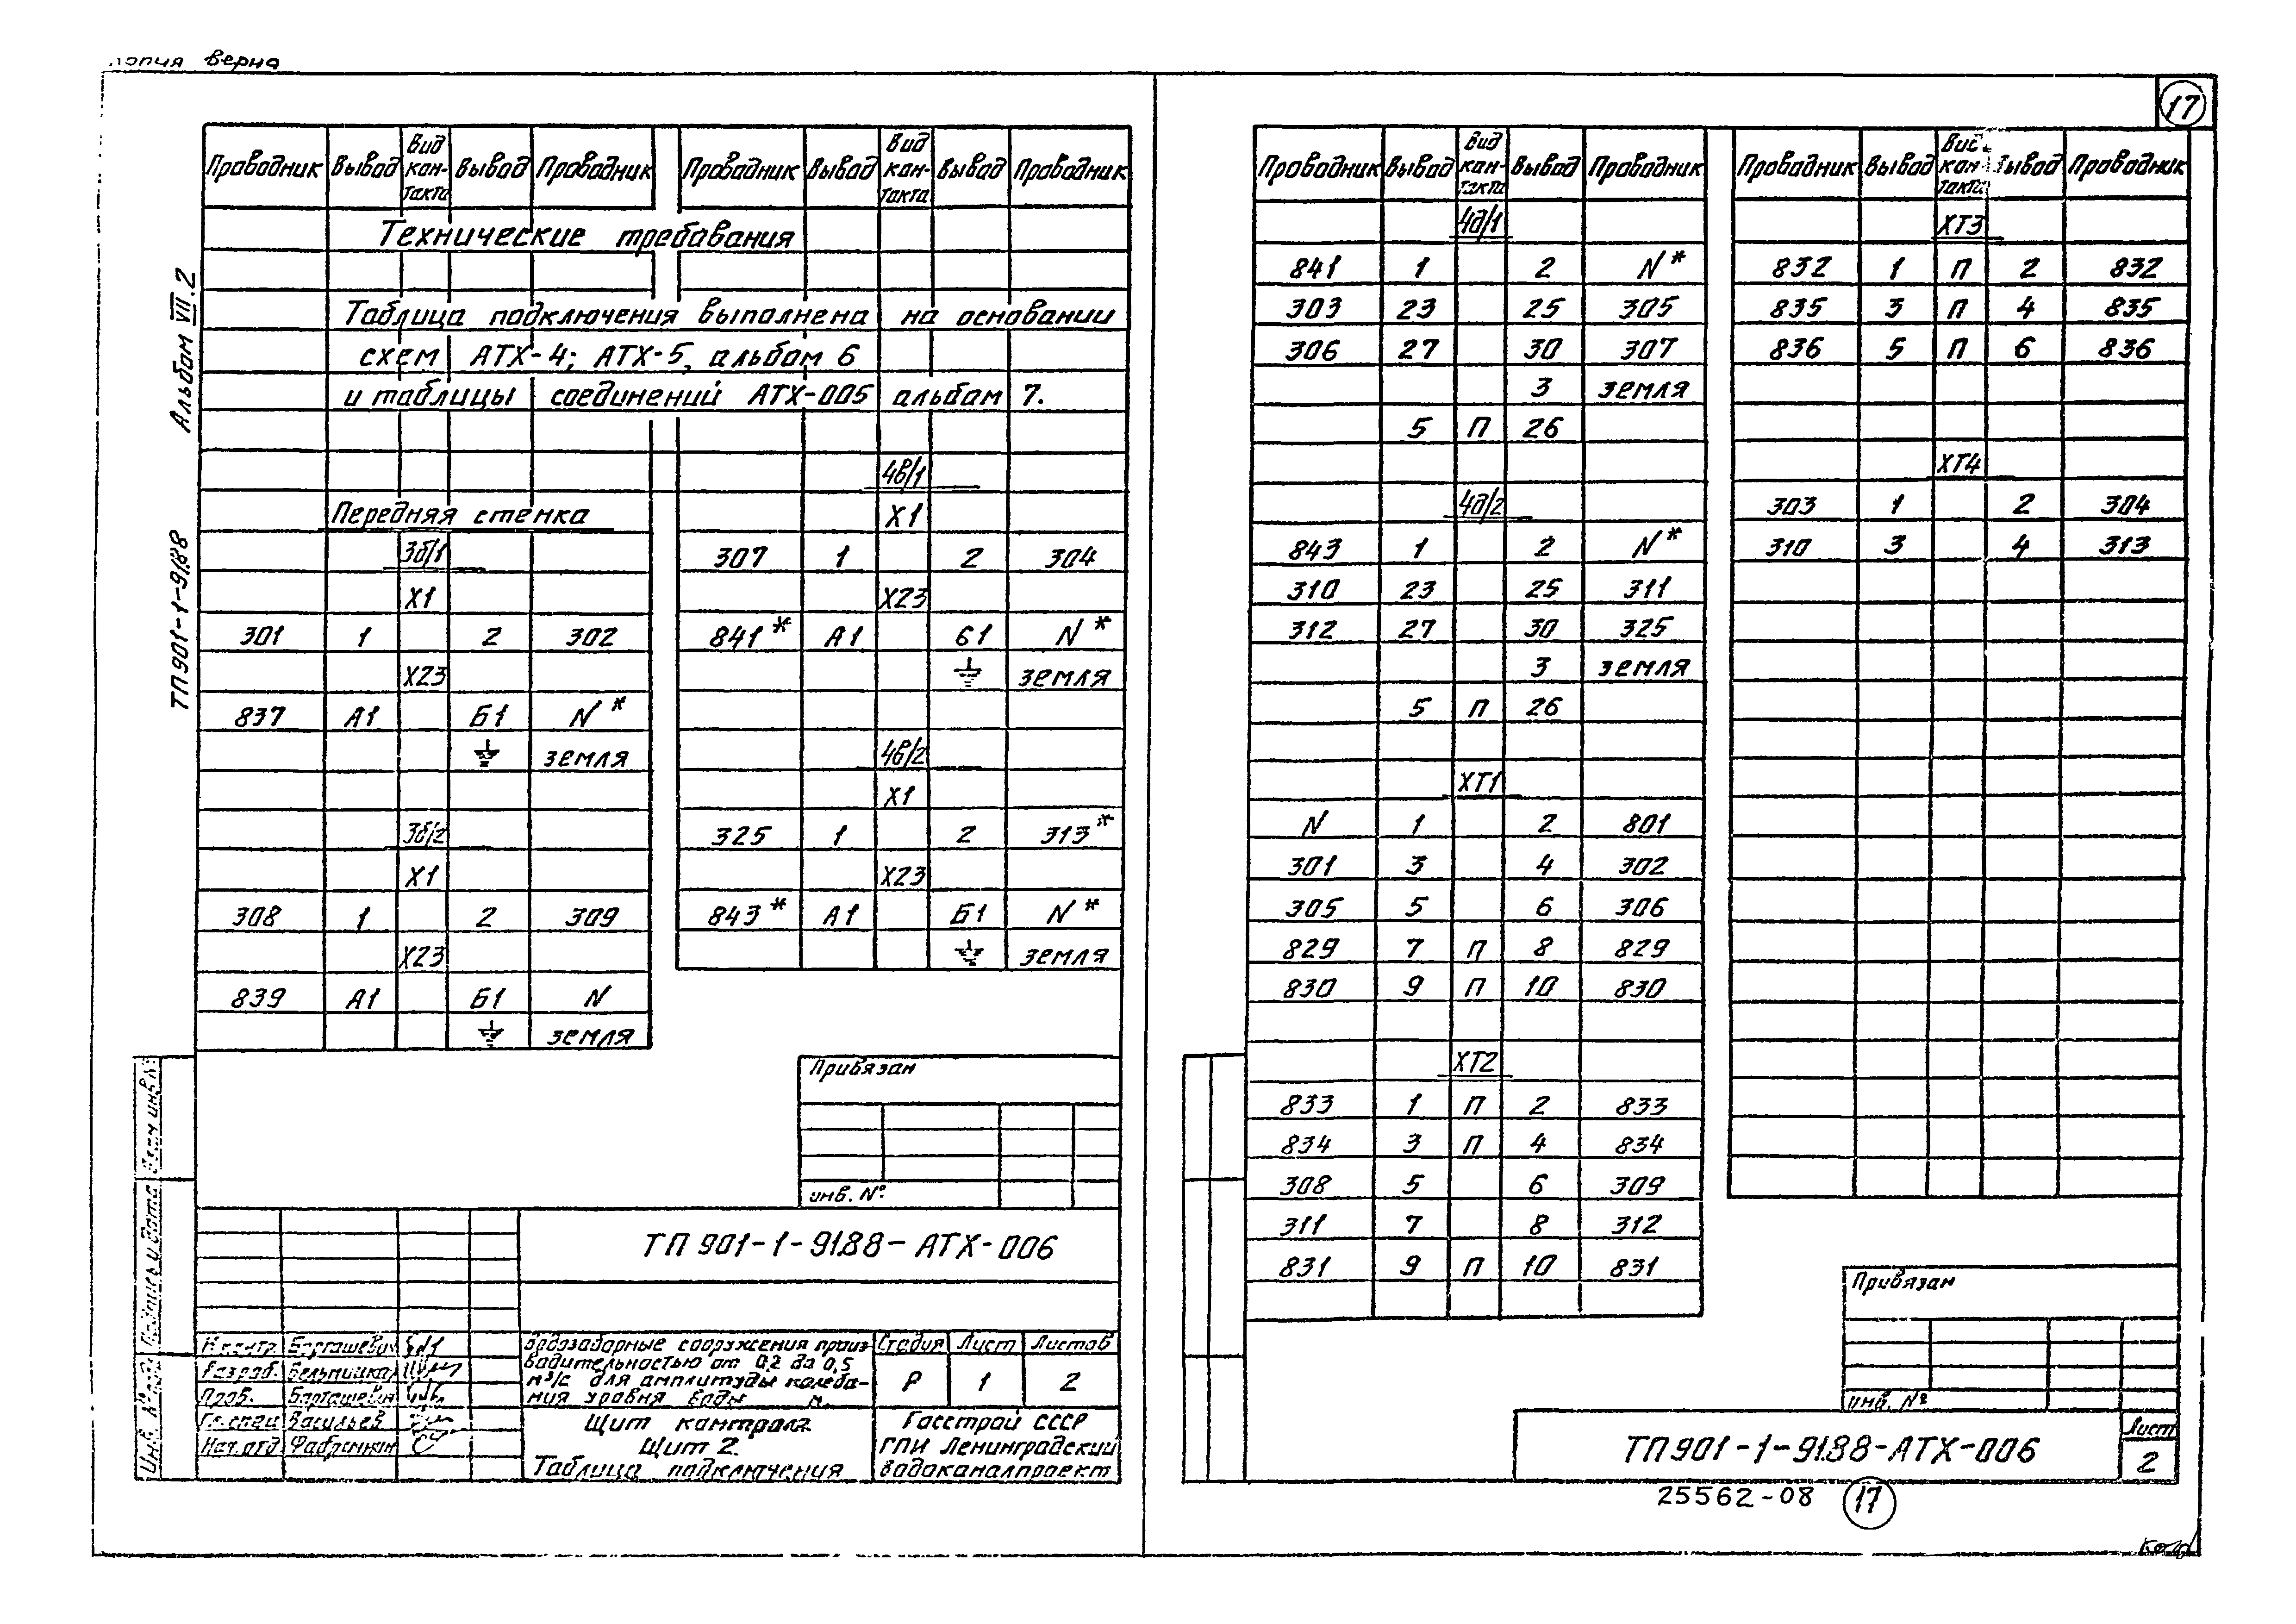 копия верна
17
Альбом VII.2
ТП901-1-91.88
Проводник Вывод Вид кон-такта Вывод Проводник
Проводник Вывод Вид кон-такта Вывод Проводник
Технические требования
Таблица подключения выполнена на основании
схем АТХ-4; АТХ-5, альбом 6
и таблицы соединений АТХ-005 альбом 7.
Передняя стенка
3б/1
Х1
301 1 2 302
Х23
837 А1 Б1 N*
земля
3б/2
Х1
308 1 2 309
Х23
839 А1 Б1 N
земля
4в/1
Х1
307 1 2 304
Х23
841* А1 Б1 N*
земля
4в/2
Х1
325 1 2 313*
Х23
843* А1 Б1 N*
земля
Привязан
инв. №
ТП 901-1-91.88-АТХ-006
Н.контр.
Разраб.
Пров.
Гл.спец. Васильев
Нач.отд.
Водозаборные сооружения произ-
водительностью от 0,2 до 0,5
м³/с для амплитуды колеба-
ния уровня воды м.
Стадия Лист Листов
Р 1 2
Щит контроля
Щит 2
Таблица подключения
Госстрой СССР
ГПИ Ленинградский
Водоканалпроект
Инв. № Подпись и дата Взам инв №
Проводник Вывод Вид кон-такта Вывод Проводник
4д/1
841 1 2 N*
303 23 25 305
306 27 30 307
3 земля
5 П 26
4д/2
843 1 2 N*
310 23 25 311
312 27 30 325
3 земля
5 П 26
ХТ1
N 1 2 801
301 3 4 302
305 5 6 306
829 7 П 8 829
830 9 П 10 830
ХТ2
833 1 П 2 833
834 3 П 4 834
308 5 6 309
311 7 8 312
831 9 П 10 831
Проводник Вывод Вид кон-такта Вывод Проводник
ХТ3
832 1 П 2 832
835 3 П 4 835
836 5 П 6 836
ХТ4
303 1 2 304
310 3 4 313
Привязан
инв. №
ТП901-1-91.88-АТХ-006
Лист
2
25562-08 17